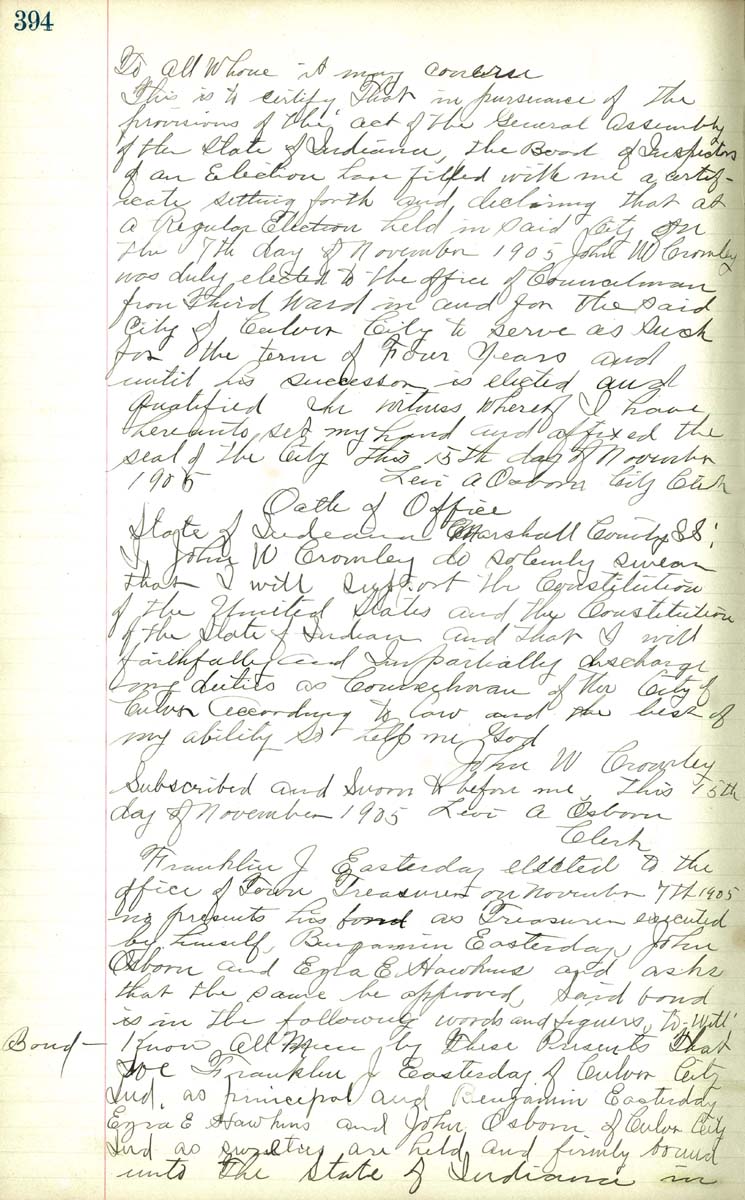 394
To All Whome it may concern
This is to certify That in pursuance of the
provisions of the act of the General Assembly
of the State of Indiana, the Board of Inspectors
of an Election have filled with me a certif-
icate setting forth and declaring that at
a Regular Election held in said City on
the 7th day of November 1905 John W Cromley
was duly elected to the office of Councilman
from Third Ward in and for the said
City of Culver City to serve as such
for the term of Four Years and
until his successor is elected and
qualified In witness whereof I have
hereunto set my hand and affixed the
seal of the City This 15th day of November
1905 Levi A Osborn City Clerk
Oath of Office
State of Indeana Marshall County SS:
I John W Cromley do solemly swear
that I will support the Constitution
of the United States and the Constitution
of the State of Indian and that I will
faithfully and Impartially discharge
my duties as Councilman of the City of
Culver According to law and the best of
my ability So help me God
John W Cromley
Subscribed and Sworn to before me This 15th
day of November 1905 Levi A Osborn
Clerk
Franklin J Easterday elected to the
office of Town Treasurer on November 7th 1905
presents his bond as Treasurer executed
by himself, Bengamin Easterday, John
Osborn and Ezra E. Hawkins and asks
that the same be approved, Said bond
is in the following words and figuers, to-wit'
Bond - Know All Men by these Presents That
We Franklin J Easterday of Culver City
Ind. as principal and Bengamin Easterday
Ezra E Hawkins and John Osborn of Culver City
Ind as sureties are held and firmly bound
unto The State of Indiana in